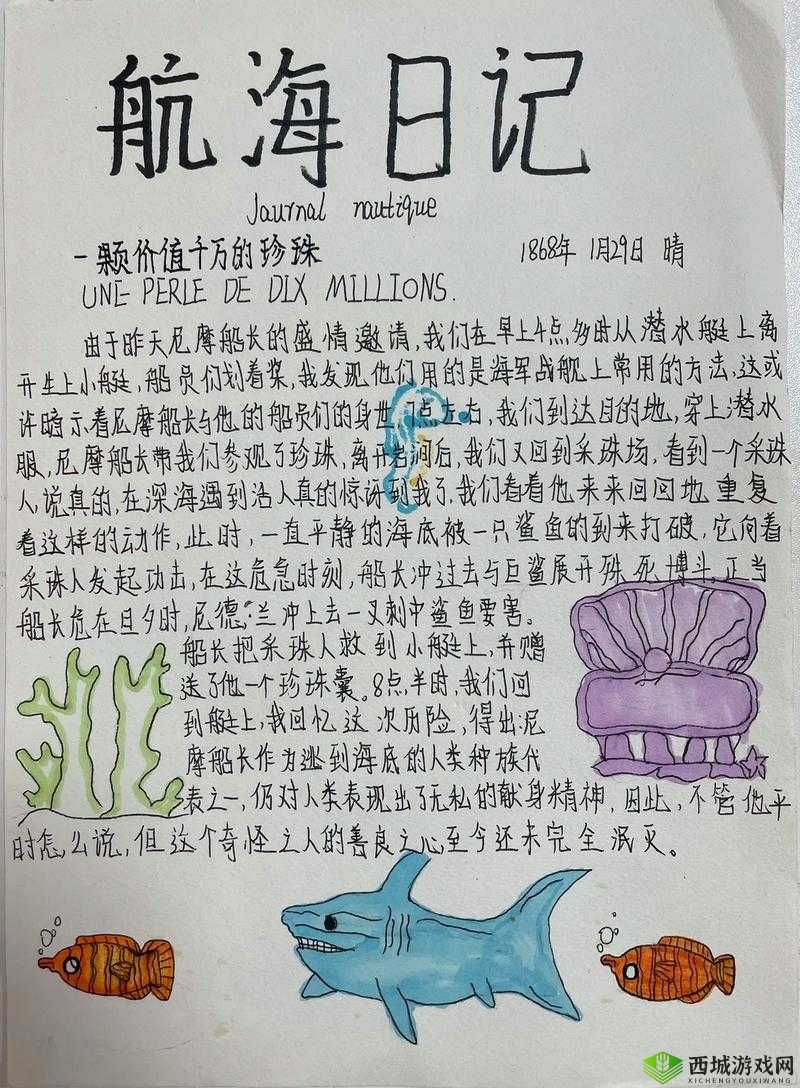 航海日记
Journal nautique
一颗价值千万的珍珠 1868年 1月29日 晴
UNE PERLE DE DIX MILLIONS.
由于昨天尼摩船长的盛情邀请,我们在早上4点多时从潜水艇上离
开坐上小艇,船员们划着桨,我发现他们用的是海军战舰上常用的方法,这或
许暗示着尼摩船长与他的船员们的身世,点左右,我们到达目的地,穿上潜水
服,尼摩船长带我们参观了珍珠,离开岩洞后,我们又回到采珠场,看到一个采珠
人,说真的,在深海遇到活人真的惊讶到我了,我们看着他来来回回地重复
着这样的动作,此时,一直平静的海底被一只鲨鱼的到来打破,它向着
采珠人发起功击,在这危急时刻,船长冲过去与巨鲨展开殊死搏斗,正当
船长危在旦夕时,尼德·兰冲上去一叉刺中鲨鱼要害。
船长把采珠人救到小艇上,并赠
送了他一个珍珠囊。8点半时,我们回
到艇上,我回忆这次历险,得出泥
摩船长作为逃到海底的人类种族代
表之一,仍对人类表现出了无私的献身精神,因此,不管他平
时怎么说,但这个奇怪之人的善良之心至今还未完全泯灭。
西城游戏网
XICHENGYOUXIWANG